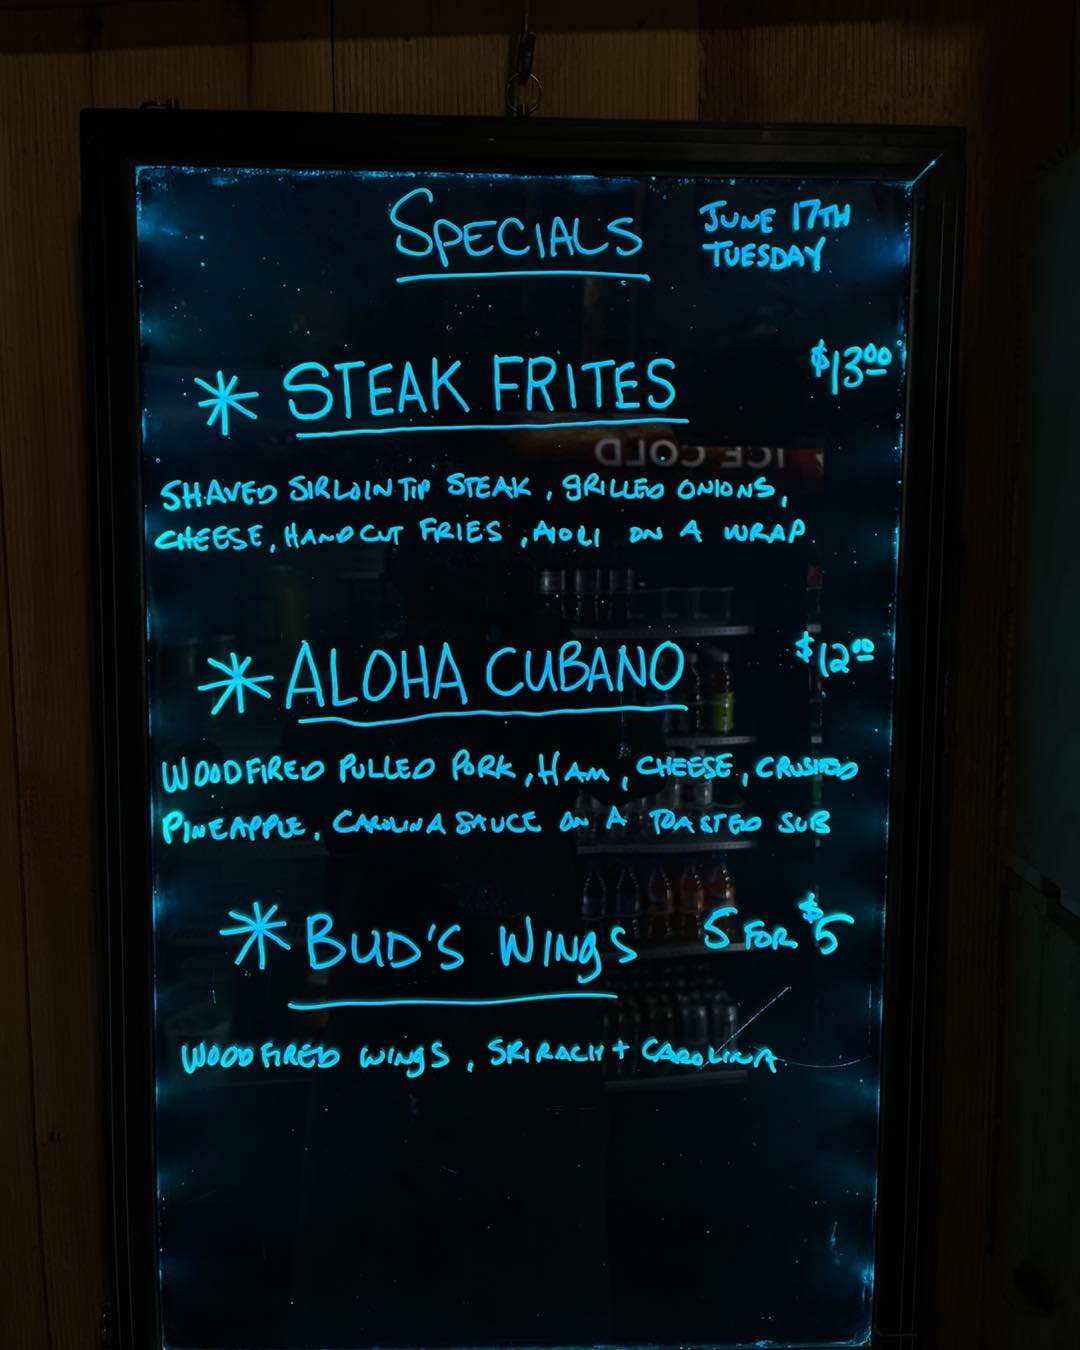 SPECIALS
JUNE 17TH
TUESDAY
* STEAK FRITES $13.00
SHAVED SIRLOIN TIP STEAK, GRILLED ONIONS,
CHEESE, HAND CUT FRIES, AIOLI ON A WRAP.
ICE COLD
* ALOHA CUBANO $12.00
WOODFIRED PULLED PORK, HAM, CHEESE, CRUSHED
PINEAPPLE, CAROLINA SAUCE ON A TOASTED SUB
* BUD'S WINGS 5 FOR $5
WOOD FIRED WINGS, SRIRACH + CAROLINA